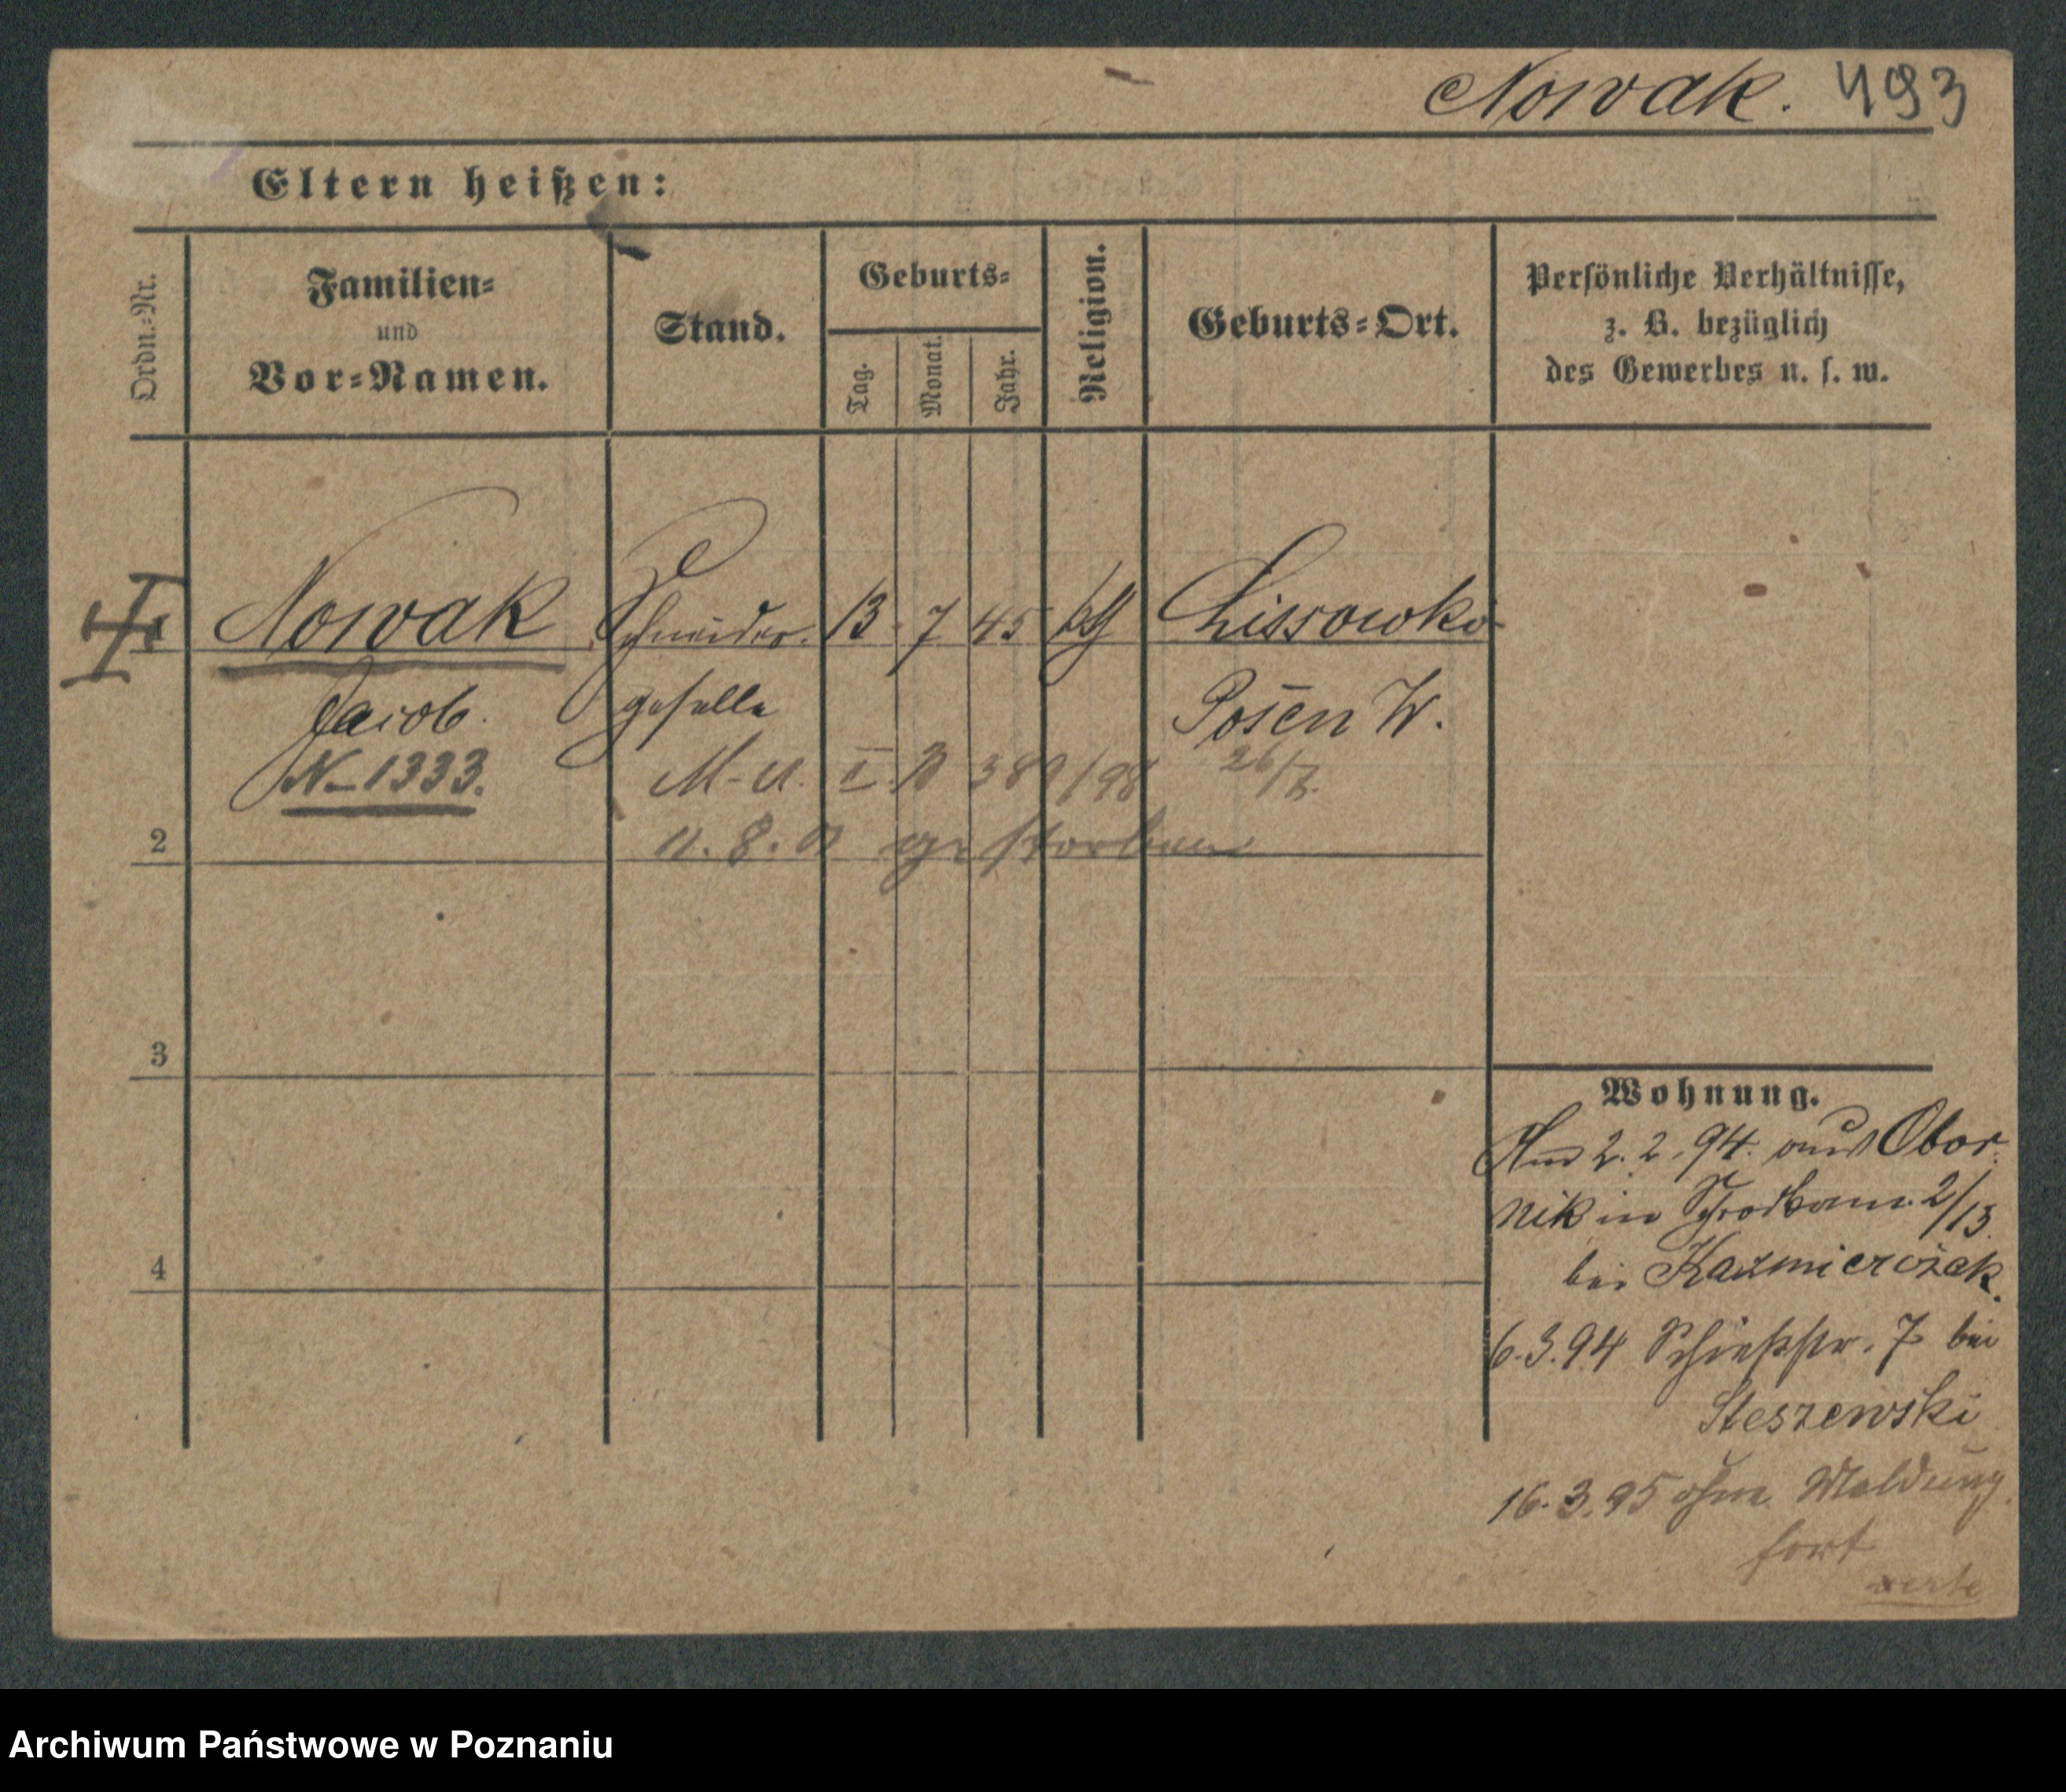 Nowak. 493
Eltern heißen:
Ordn.-Nr.
Familien-
und
Vor-Namen.
Stand.
Geburts-
Tag.
Monat.
Jahr.
Religion.
Geburts-Ort.
Persönliche Verhältnisse,
z. B. bezüglich
des Gewerbes u. s. w.
1 Nowak Schneider- 13 7 45 kth Lissowki
Jacob. geselle Posen W.
N 1333. M-A. 26/
2 11. 8. gestorben
3
4
Wohnung.
Am 2. 2. 94. aus Obor-
nik in 2/13.
bei Kazmierczak.
6.3.94 Schießstr. 7 bei
Steszewski
16.3.95 ohne Meldung
fort
verte
Archiwum Państwowe w Poznaniu